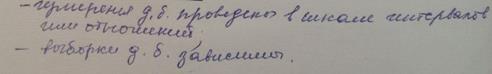 - измерения д.б. проведены в шкале интервалов
или отношений
- выборки д.б. зависимы.